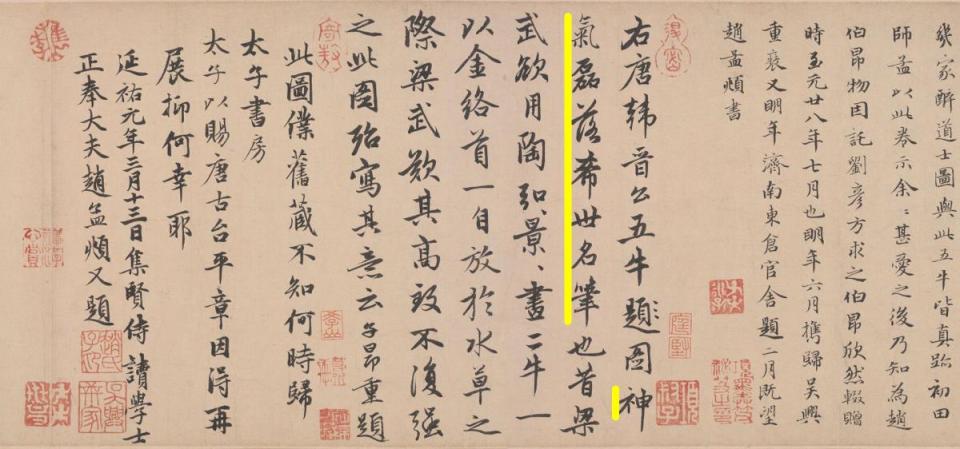 幾家醉道士圖與此五牛皆真跡初田
師孟以此卷示余〻甚愛之後乃知為趙
伯昂物因託劉彥方求之伯昂欣然輟贈
時至元廿八年七月也明年六月攜歸吳興
重裝又明年濟南東倉官舍題二月既望
趙孟頫書
右唐韓晉公五牛題圖神
氣磊落希世名筆也昔梁
武欲用陶弘景〻畫二牛一
以金絡首一自放於水草之
際梁武歎其高致不復强
之此圖殆寫其意云子昂重題
此圖僕舊藏不知何時歸
太子書房
太子以賜唐古台平章因得再
展抑何幸耶
延祐元年三月十三日集賢侍讀學士
正奉大夫趙孟頫又題